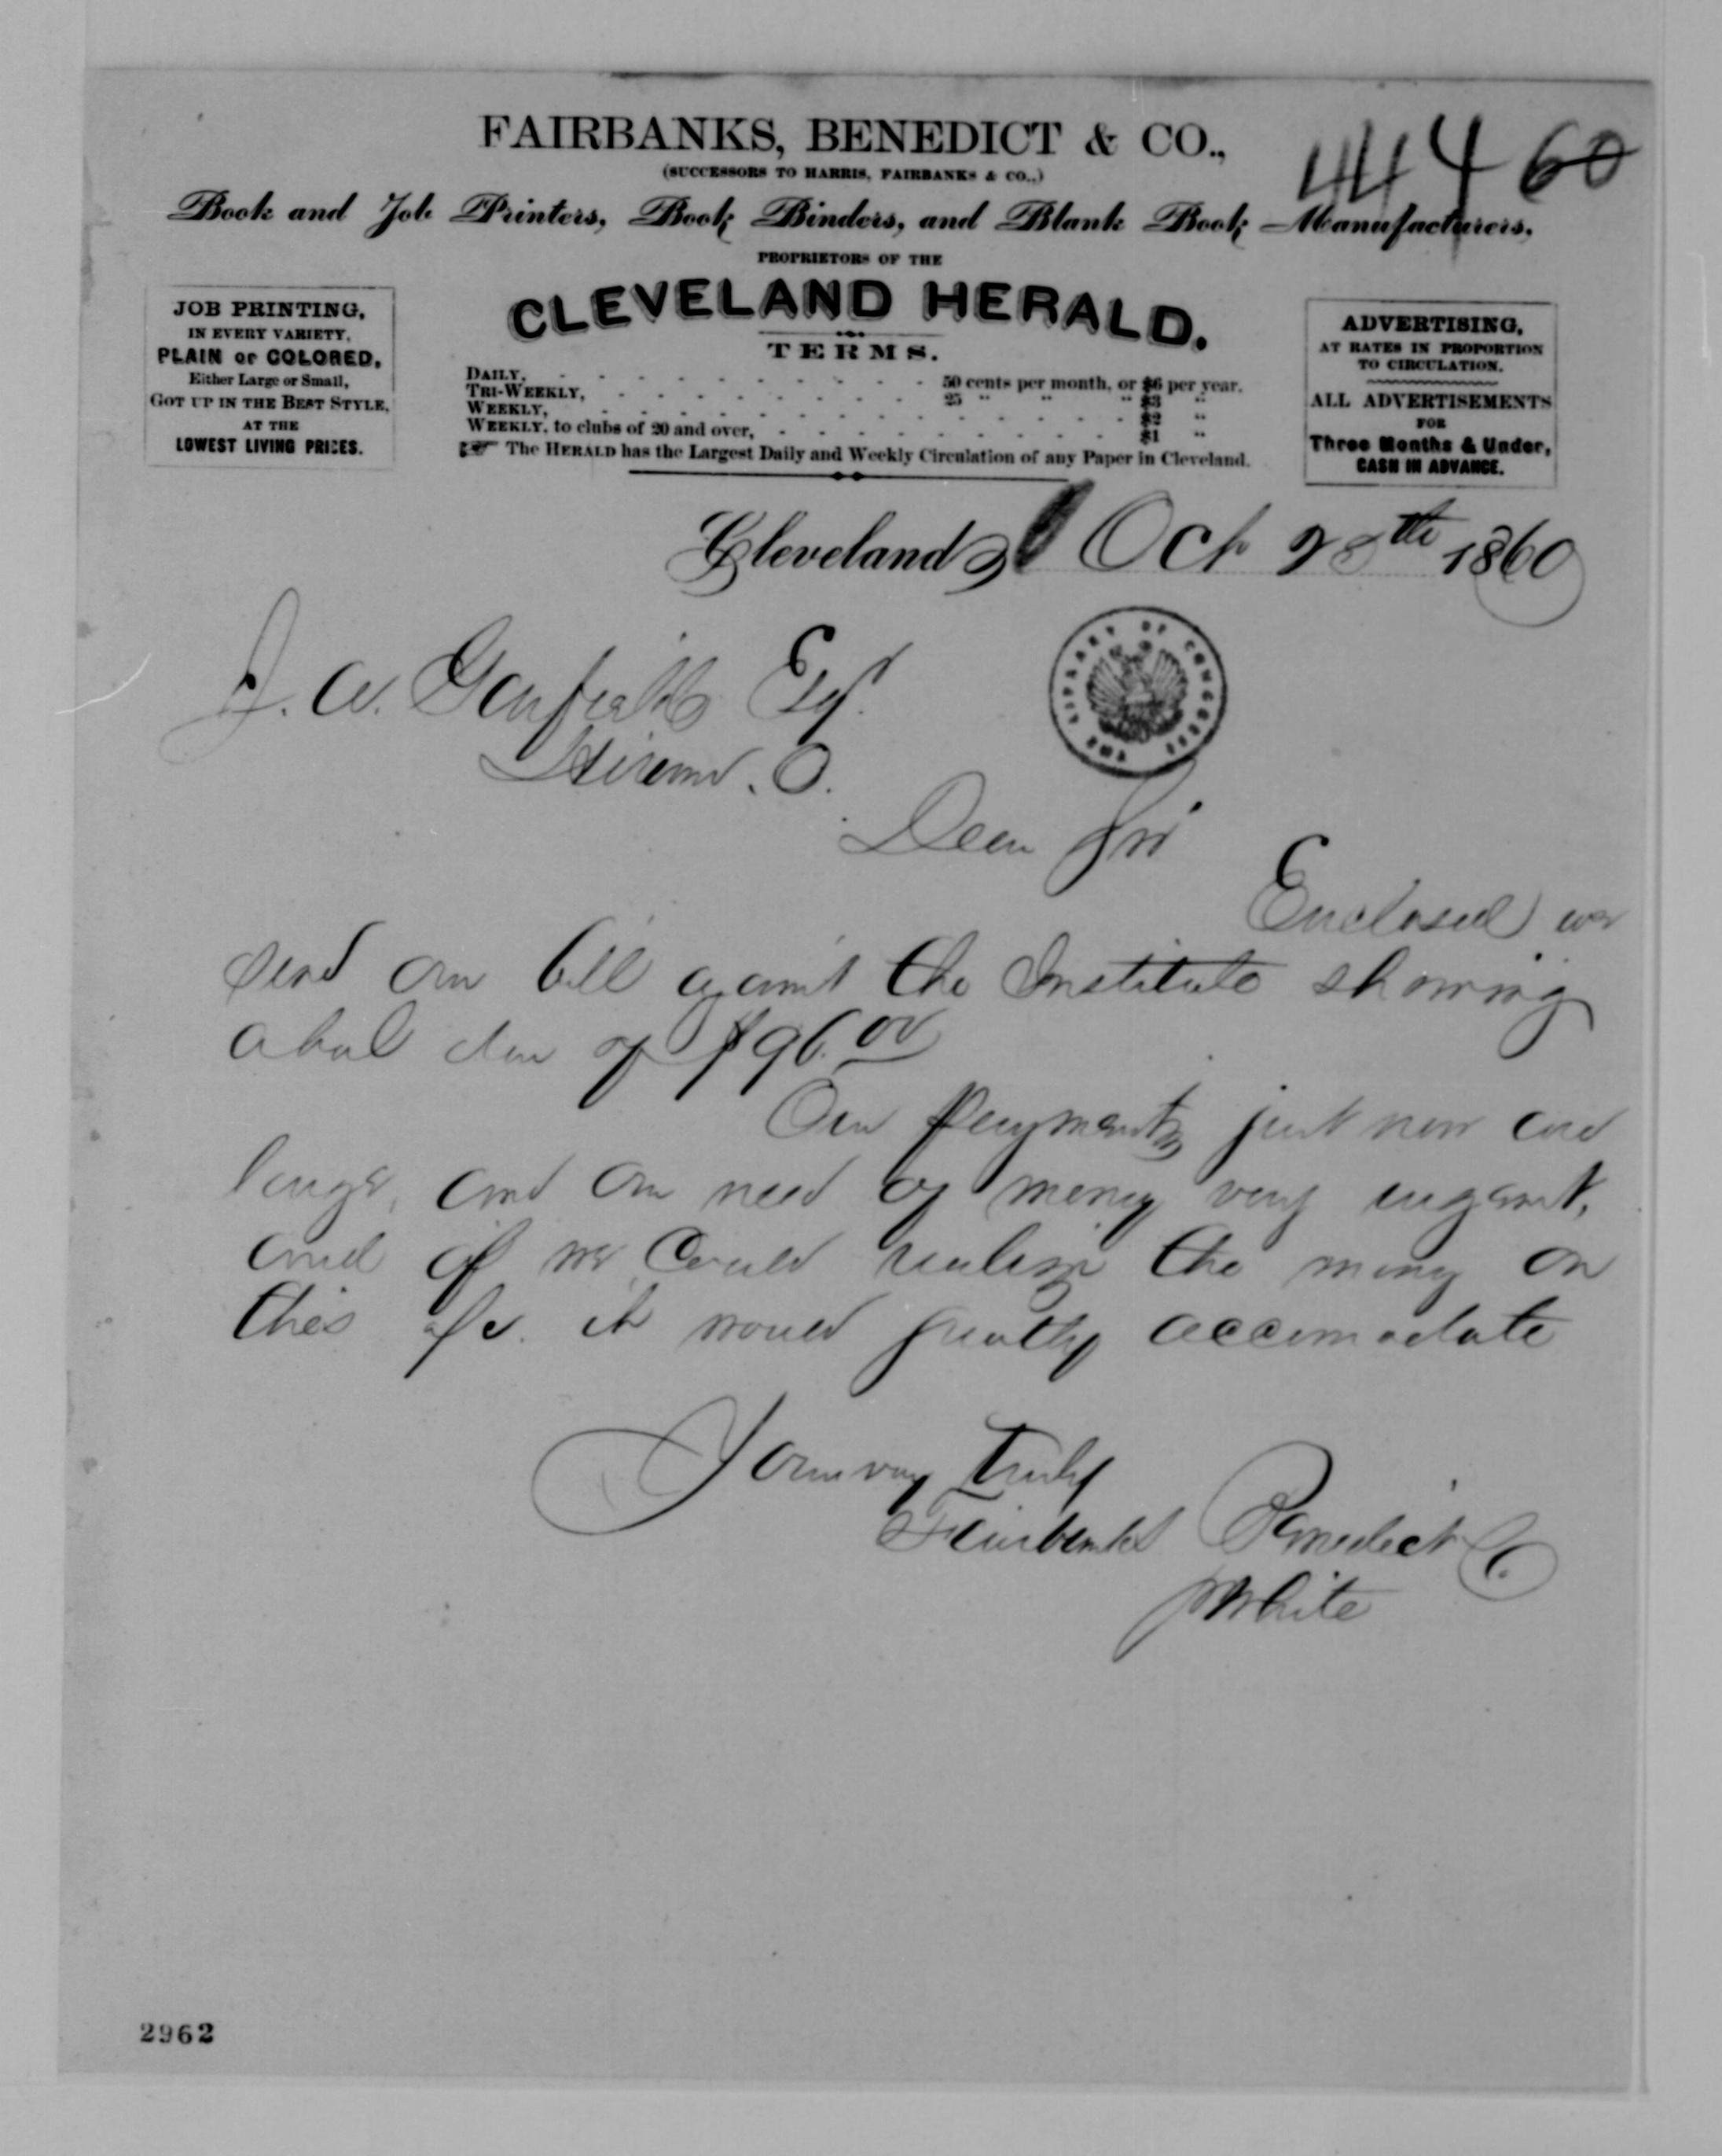 FAIRBANKS, BENEDICT & CO.,
(SUCCESSORS TO HARRIS, FAIRBANKS & CO.,)
Book and Job Printers, Book Binders, and Blank Book Manufacturers,
PROPRIETORS OF THE
CLEVELAND HERALD.
JOB PRINTING,
IN EVERY VARIETY,
PLAIN or COLORED,
Either Large or Small,
GOT UP IN THE BEST STYLE,
AT THE
LOWEST LIVING PRICES.
TERMS.
DAILY, 50 cents per month, or $6 per year.
TRI-WEEKLY, 25 " " " $3 "
WEEKLY, $2 "
WEEKLY, to clubs of 20 and over, $1 "
The HERALD has the Largest Daily and Weekly Circulation of any Paper in Cleveland.
ADVERTISING,
AT RATES IN PROPORTION
TO CIRCULATION.
ALL ADVERTISEMENTS
FOR
Three Months & Under,
CASH IN ADVANCE.
Cleveland, Oct 1860
J. A. Garfield Esqr
Hiram. O.
THE LIBRARY OF CONGRESS
Dear Sir
Enclosed we
send our bill against the Institute showing
a bal due of $96.00
Our payments just now are
large, and our need of money very urgent,
and if we could realize the money on
this a/c. it would greatly accomodate
Yours very truly
Fairbanks Benedict Co.
White
2962